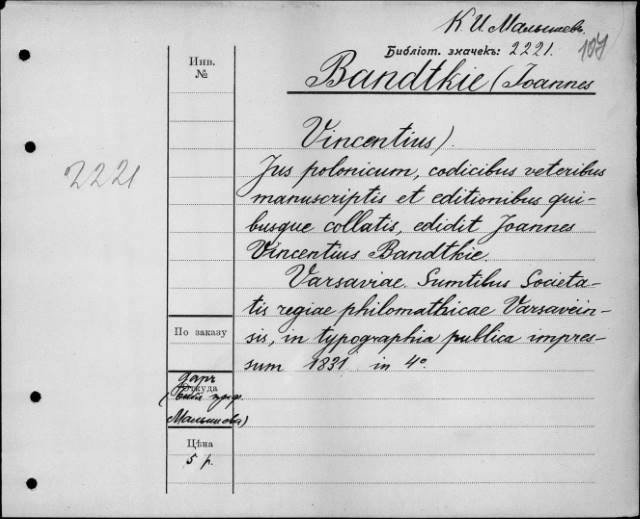 К. И. Малышевъ.
107
Библіот. значекъ: 2221.
Инв.
№
Bandtkie (Joannes
Vincentius).
2221
Jus polonicum, codicibus veteribus
manuscriptis et editionibus qui-
busque collatis, edidit Joannes
Vincentius Bandtkie.
Varsaviae. Sumtibus Societa-
tis regiae philomathicae Varsavien-
sis, in typographia publica impres-
sum 1831 in 4º.
По заказу
Даръ
Откуда
(Библ. проф.
Малышева)
Цѣна
5 р.